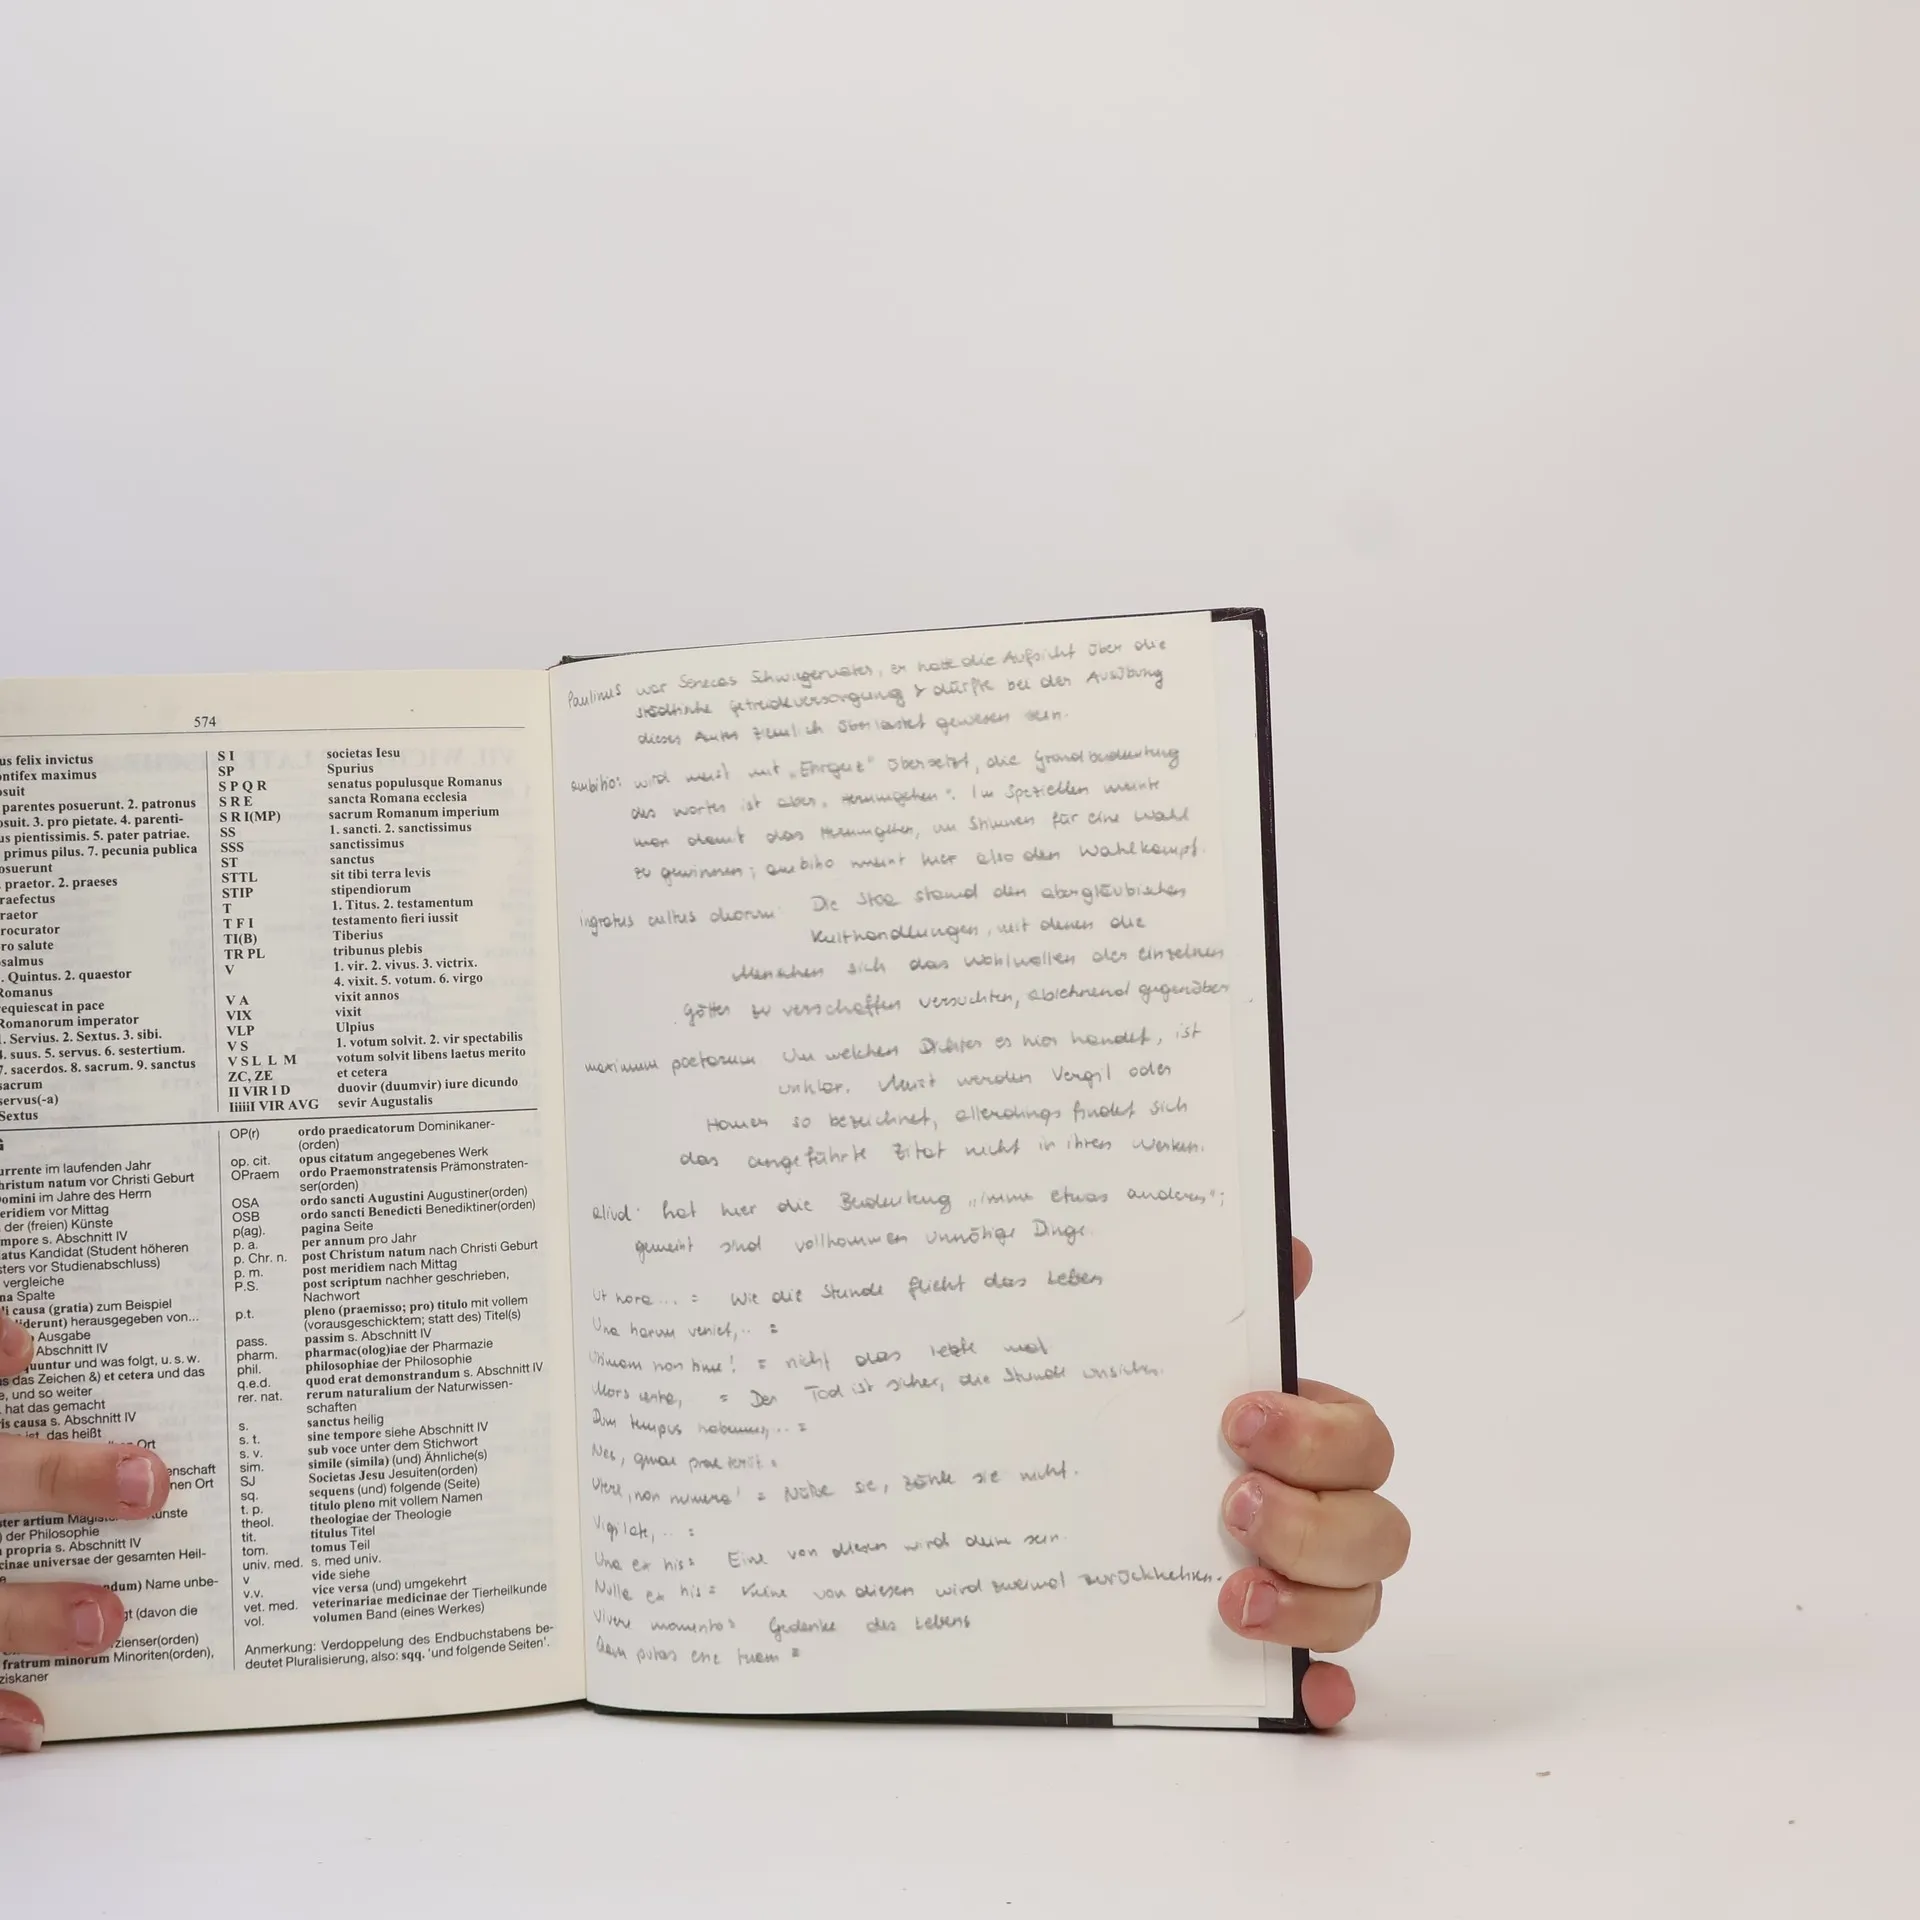 574
us felix invictus
ontifex maximus
osuit
parentes posuerunt. 2. patronus
osuit. 3. pro pietate. 4. parenti-
us pientissimis. 5. pater patriae.
primus pilus. 7. pecunia publica
osuerunt
praetor. 2. praeses
raefectus
raetor
rocurator
ro salute
salmus
. Quintus. 2. quaestor
Romanus
requiescat in pace
Romanorum imperator
. Servius. 2. Sextus. 3. sibi.
4. suus. 5. servus. 6. sestertium.
7. sacerdos. 8. sacrum. 9. sanctus
sacrum
servus(-a)
Sextus
S I societas Iesu
SP Spurius
S P Q R senatus populusque Romanus
S R E sancta Romana ecclesia
S R I(MP) sacrum Romanum imperium
SS 1. sancti. 2. sanctissimus
SSS sanctissimus
ST sanctus
STTL sit tibi terra levis
STIP stipendiorum
T 1. Titus. 2. testamentum
T F I testamento fieri iussit
TI(B) Tiberius
TR PL tribunus plebis
V 1. vir. 2. vivus. 3. victrix.
4. vixit. 5. votum. 6. virgo
V A vixit annos
VIX vixit
VLP Ulpius
V S 1. votum solvit. 2. vir spectabilis
V S L L M votum solvit libens laetus merito
ZC, ZE et cetera
II VIR I D duovir (duumvir) iure dicundo
IiiiiI VIR AVG sevir Augustalis
G
urrente im laufenden Jahr
hristum natum vor Christi Geburt
omini im Jahre des Herrn
eridiem vor Mittag
der (freien) Künste
mpore s. Abschnitt IV
atus Kandidat (Student höheren
sters vor Studienabschluss)
vergleiche
na Spalte
li causa (gratia) zum Beispiel
iderunt) herausgegeben von...
Ausgabe
Abschnitt IV
quuntur und was folgt, u. s. w.
s das Zeichen &) et cetera und das
e, und so weiter
hat das gemacht
ris causa s. Abschnitt IV
ist, das heißt
Ort
enschaft
nen Ort
ster artium
unste
der Philosophie
propria s. Abschnitt IV
cinae universae der gesamten Heil-
ndum) Name unbe-
gt (davon die
zienser(orden)
fratrum minorum Minoriten(orden),
ziskaner
OP(r) ordo praedicatorum Dominikaner-
(orden)
op. cit. opus citatum angegebenes Werk
OPraem ordo Praemonstratensis Prämonstraten-
ser(orden)
OSA ordo sancti Augustini Augustiner(orden)
OSB ordo sancti Benedicti Benediktiner(orden)
p(ag). pagina Seite
p. a. per annum pro Jahr
p. Chr. n. post Christum natum nach Christi Geburt
p. m. post meridiem nach Mittag
P.S. post scriptum nachher geschrieben,
Nachwort
p.t. pleno (praemisso; pro) titulo mit vollem
(vorausgeschicktem; statt des) Titel(s)
pass. passim s. Abschnitt IV
pharm. pharmac(olog)iae der Pharmazie
phil. philosophiae der Philosophie
q.e.d. quod erat demonstrandum s. Abschnitt IV
rer. nat. rerum naturalium der Naturwissen-
schaften
s. sanctus heilig
s. t. sine tempore siehe Abschnitt IV
s. v. sub voce unter dem Stichwort
sim. simile (simila) (und) Ähnliche(s)
SJ Societas Jesu Jesuiten(orden)
sq. sequens (und) folgende (Seite)
t. p. titulo pleno mit vollem Namen
theol. theologiae der Theologie
tit. titulus Titel
tom. tomus Teil
univ. med. s. med univ.
v vide siehe
v.v. vice versa (und) umgekehrt
vet. med. veterinariae medicinae der Tierheilkunde
vol. volumen Band (eines Werkes)
Anmerkung: Verdoppelung des Endbuchstabens be-
deutet Pluralisierung, also: sqq. 'und folgende Seiten'.
Paulinus war Senecas Schwiegervater, er hatte die Aufsicht über die
städtische Getreideversorgung & dürfte bei der Ausübung
dieses Amtes ziemlich überlastet gewesen sein.
ambitio: wird meist mit „Ehrgeiz" übersetzt, die Grundbedeutung
des Wortes ist aber „Herumgehen". Im Speziellen meinte
man damit das Herumgehen, um Stimmen für eine Wahl
zu gewinnen; ambitio meint hier also den Wahlkampf.
ingratus cultus deorum: Die Stoa stand den abergläubischen
Kulthandlungen, mit denen die
Menschen sich das Wohlwollen der einzelnen
Götter zu verschaffen versuchten, ablehnend gegenüber
maximum poetarum Um welchen Dichter es hier handelt, ist
unklar. Meist werden Vergil oder
Homer so bezeichnet, allerdings findet sich
das angeführte Zitat nicht in ihren Werken.
aliud: hat hier die Bedeutung „immer etwas anderes";
gemeint sind vollkommen unnötige Dinge.
Ut hora... = Wie die Stunde flieht das Leben
Una harum veniet,.. =
Ultimam non time! = nicht das letzte mal
Mors certa, = Der Tod ist sicher, die Stunde unsicher.
Dum tempus habemus,.. =
Nec, quae praeteriit =
Utere, non numera! = Nütze sie, zähle sie nicht.
Vigilate,.. =
Una ex his= Eine von diesen wird deine sein.
Nulla ex his = Keine von diesen wird zweimal zurückkehren.
Vivere memento= Gedenke des Lebens
Quam putas esse tuam =